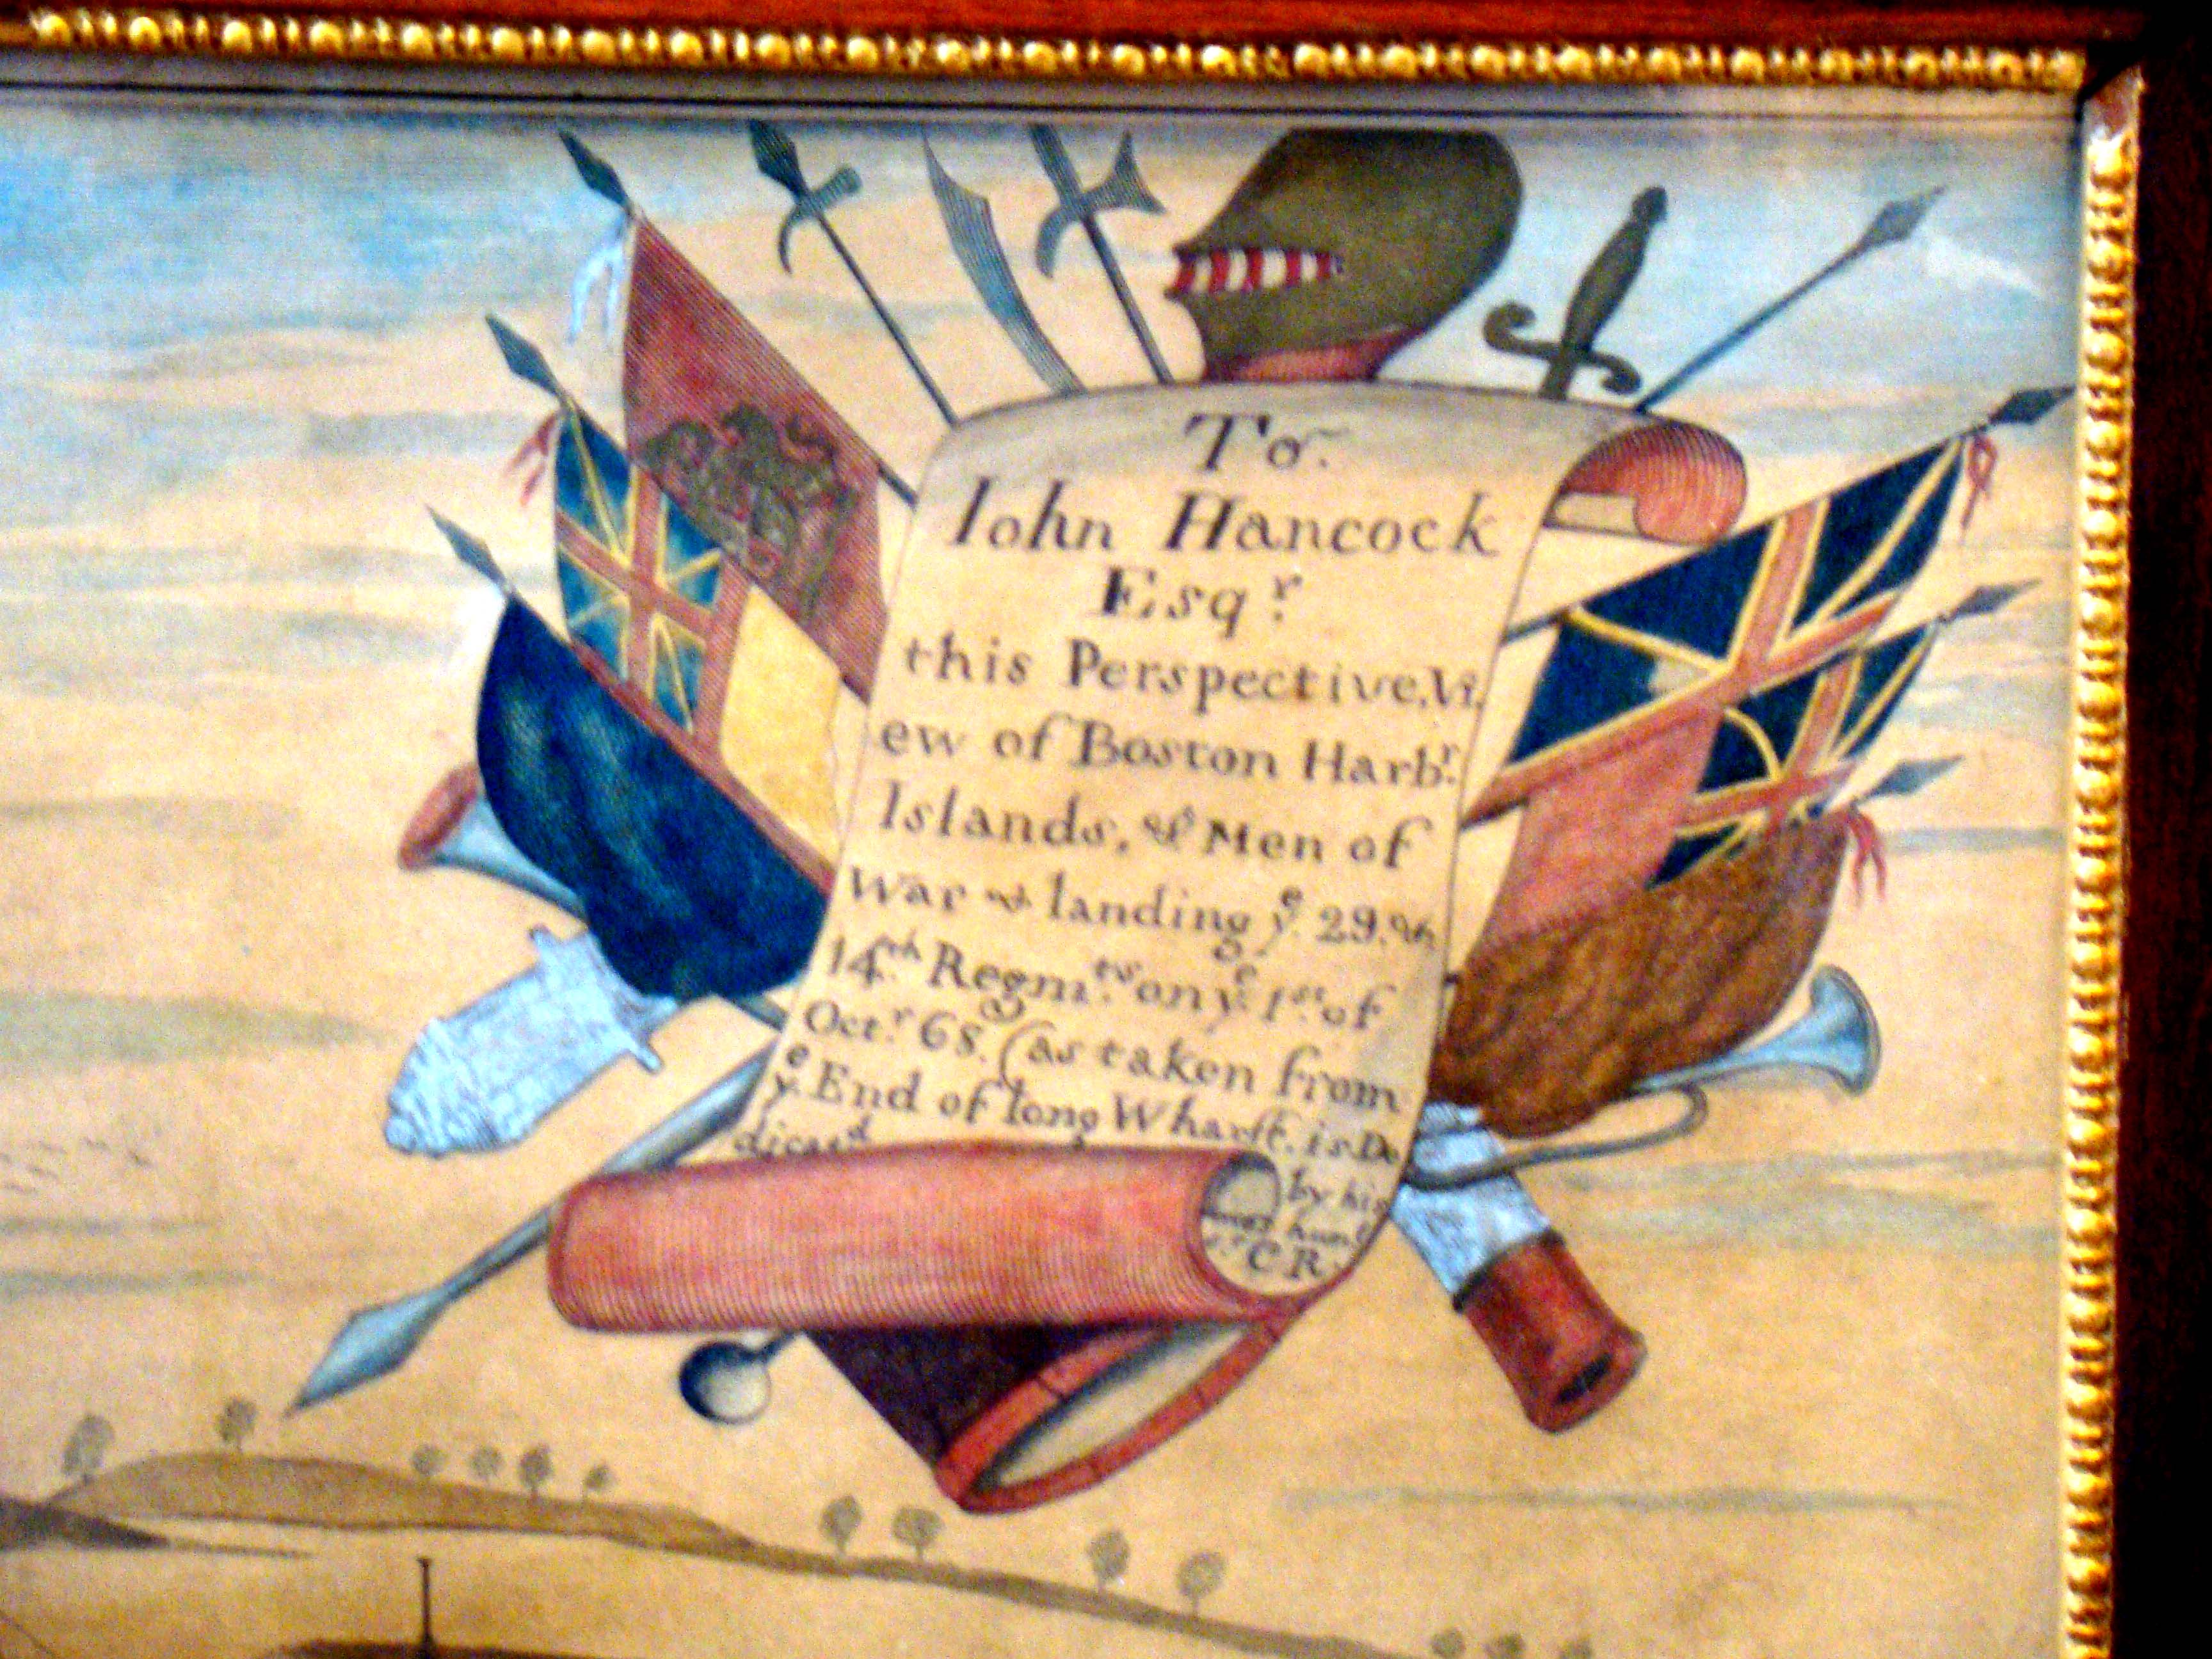 To.
Iohn Hancock
Esqr.
this Perspective, Vi
ew of Boston Harbr.
Islands, & Men of
War & landing ye. 29. &
14.th Regm.ts on ye. 1st. of
Oct.r 68. (as taken from
ye. End of long Wharff. is De
dicatd
by his
hum
C R.